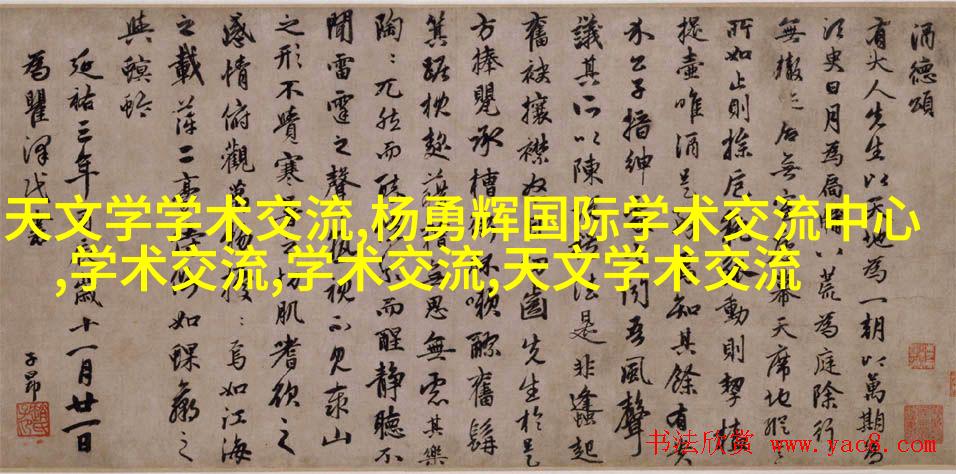 酒德頌
有大人先生以天地為一朝以萬期為
須臾日月為扃八荒為庭除行
無轍迹居無幕天席地縱
所如止則操卮動則挈榼
提壺唯酒是知其餘有貴
介公子搢紳聞吾風聲
議其所以陳法是非蠭起
奮袂攘襟怒齒先生於是
方捧甖承槽銜杯嗽醪奮髯
箕踞枕麴藉糟無思無慮其樂
陶〻兀然而而醒靜聽不
聞雷霆之聲視不見泰山
之形不覺寒切肌嗜欲之
感情俯觀萬物擾〻焉如江海
之載萍二豪如蜾蠃之
與螟蛉
延祐三年歲十一月廿一日
為瞿澤
子昂
天文学学术交流,杨勇辉国际学术交流中心
,学术交流,学术交流,天文学术交流
书法欣赏 www.yac8.com